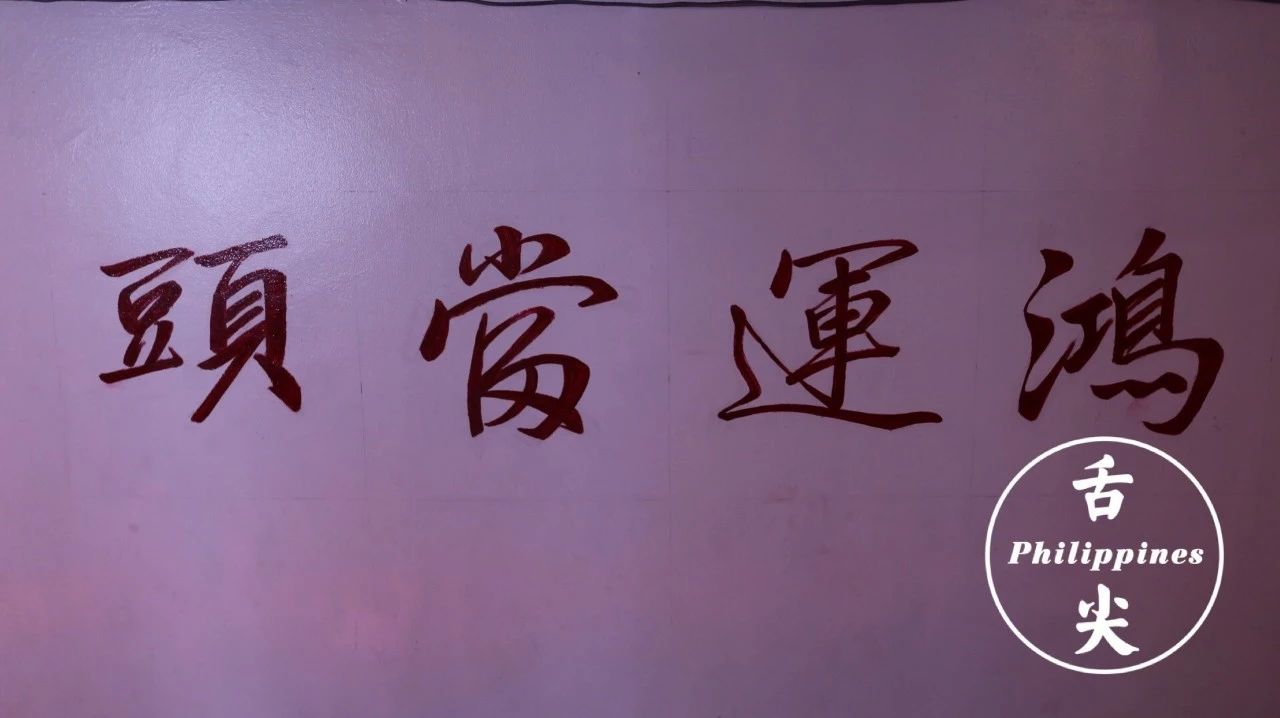 鴻運當頭
舌
Philippines
尖